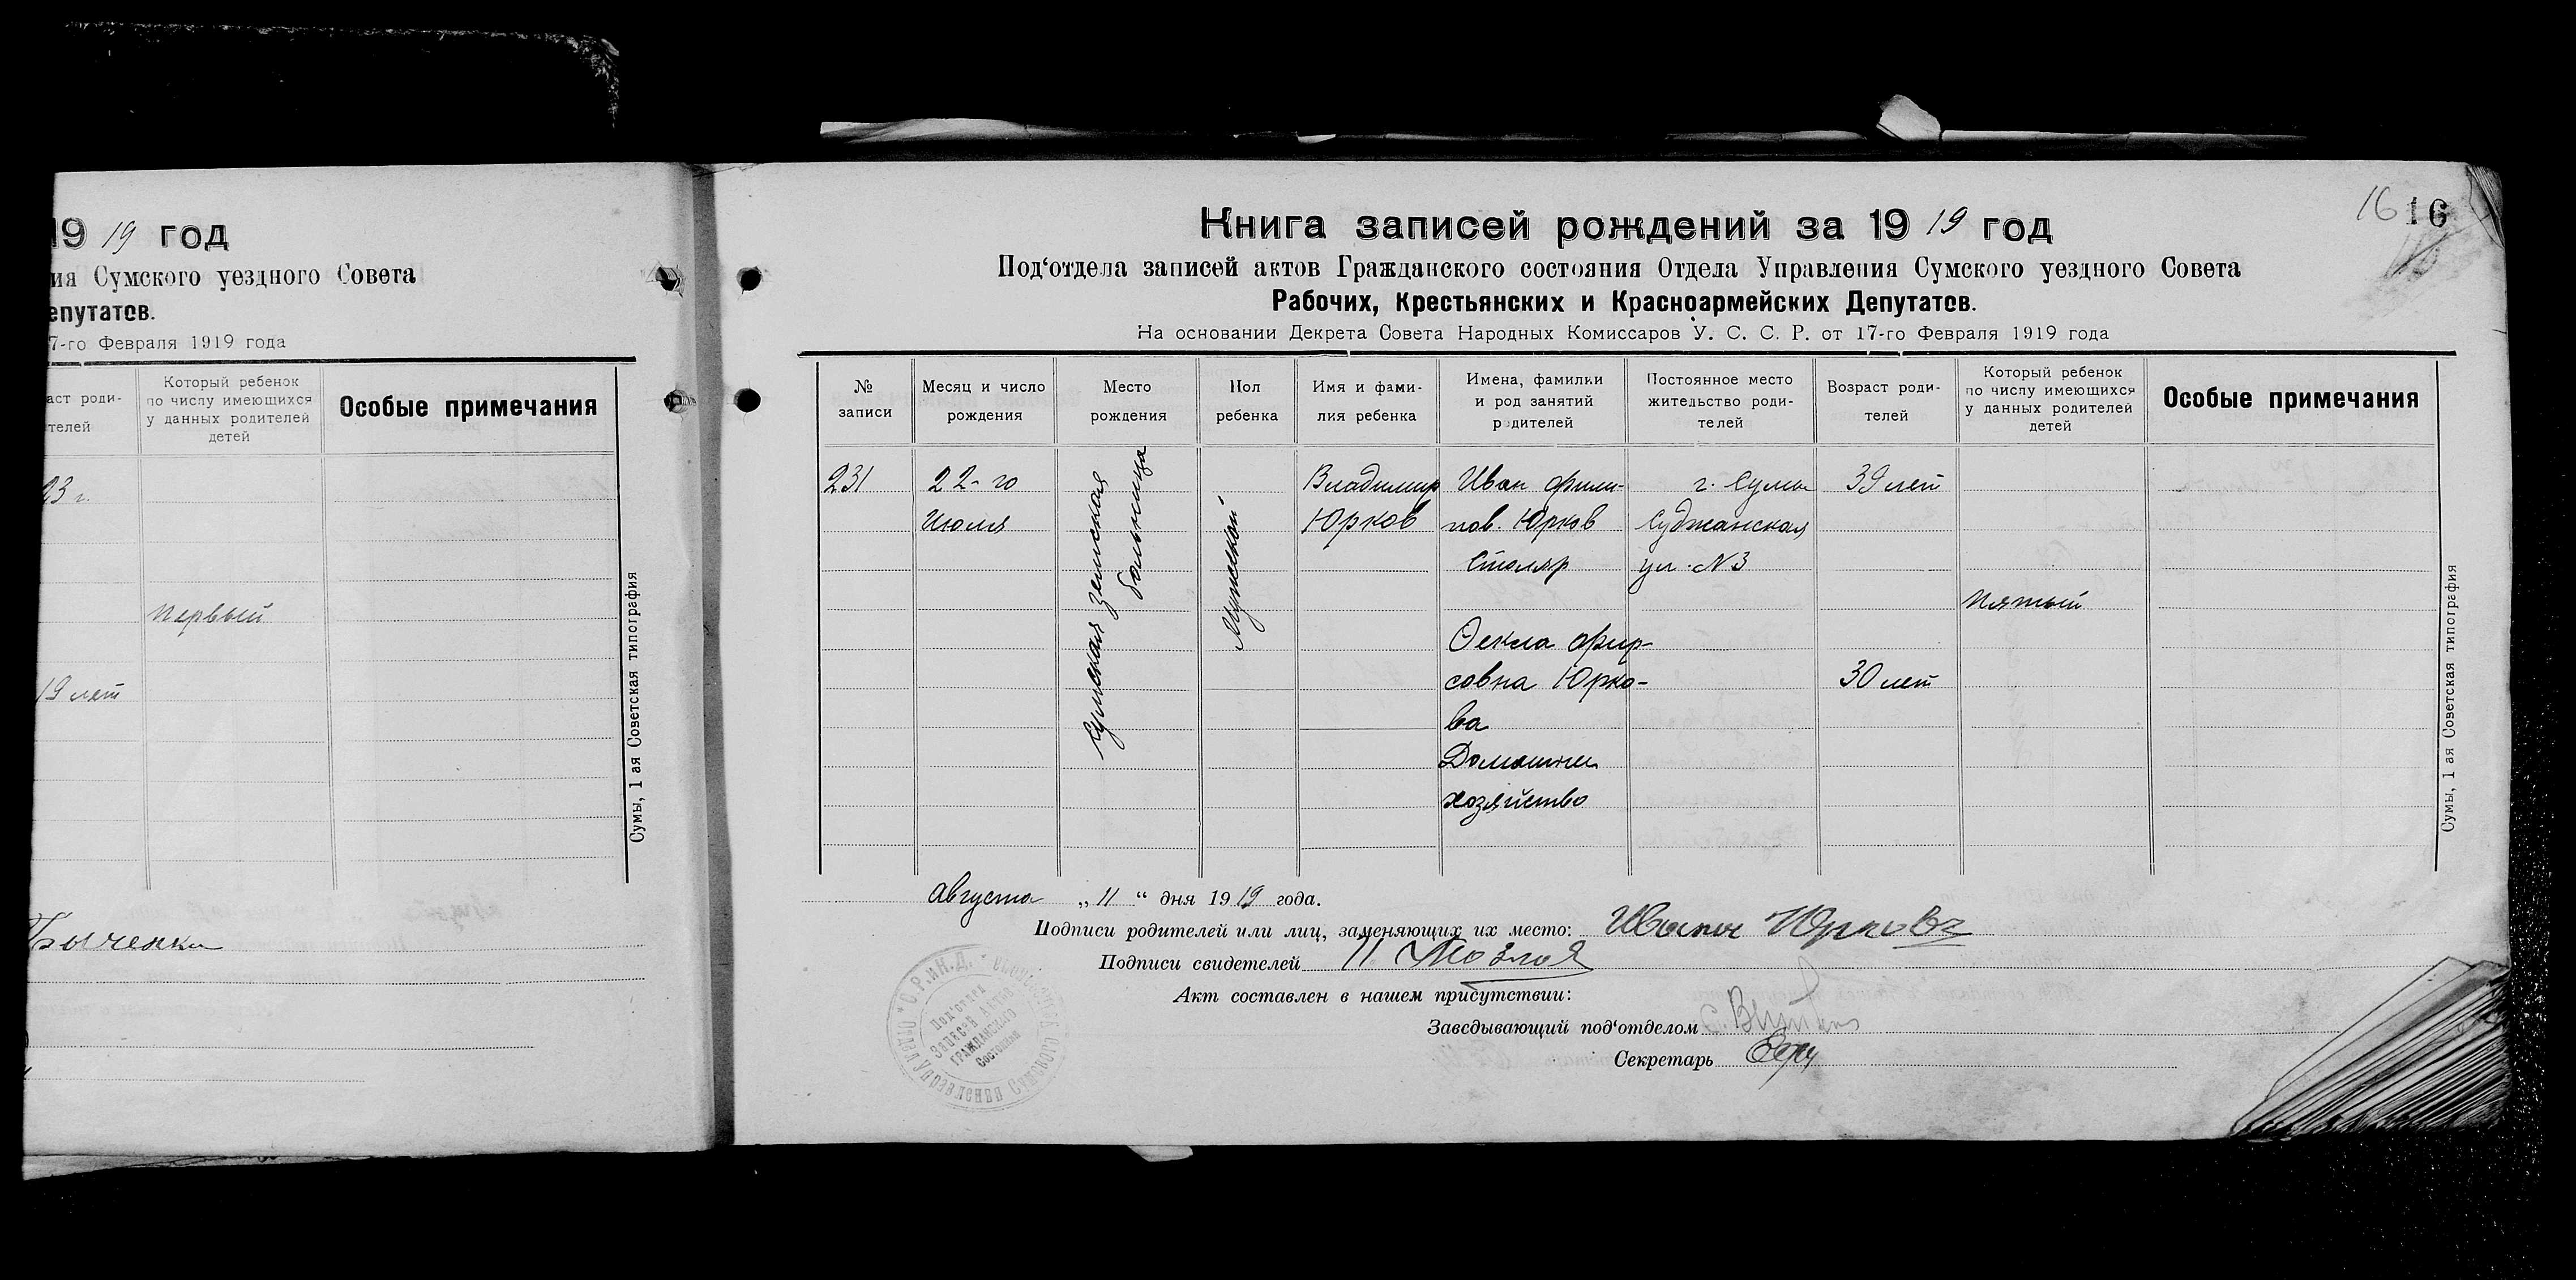 19 19 год
ия Сумского уездного Совета
епутатов.
7-го Февраля 1919 года
аст роди-
телей
Который ребенок
по числу имеющихся
у данных родителей
детей
Особые примечания
23 г.
первый
19 лет
Сумы, 1 ая Советская типография
16 16
Книга записей рождений за 19 19 год
Под‘отдела записей актов Гражданского состояния Отдела Управления Сумского уездного Совета
Рабочих, Крестьянских и Красноармейских Депутатов.
На основании Декрета Совета Народных Комиссаров У. С. С. Р. от 17-го Февраля 1919 года
№
записи
Месяц и число
рождения
Место
рождения
Пол
ребенка
Имя и фами-
лия ребенка
Имена, фамилки
и род занятий
родителей
Постоянное место
жительство роди-
телей
Возраст роди-
телей
Который ребенок
по числу имеющихся
у данных родителей
детей
Особые примечания
231
22-го
Июля
Сумская земская
больница
Мужской
Владимир
Юрков
Иван Фили-
пов. Юрков
Столяр
Фекла Фир-
совна Юрко-
ва
Домашнее
хозяйство
г. Сумы
Суджанская
ул. N 3
39 лет
30 лет
пятый
Сумы, 1 ая Советская типография
Августа „ 11 “ дня 19 19 года.
Подписи родителей или лиц, заменяющих их место: Иванъ Юрковъ
Подписи свидетелей
Акт составлен в нашем присутствии:
Заведывающий под‘отделом
Секретарь
Отдел Управления Сумского
С.Р. и К.Д.
Под‘отдел
Записей Актов
Гражданского
Состояния